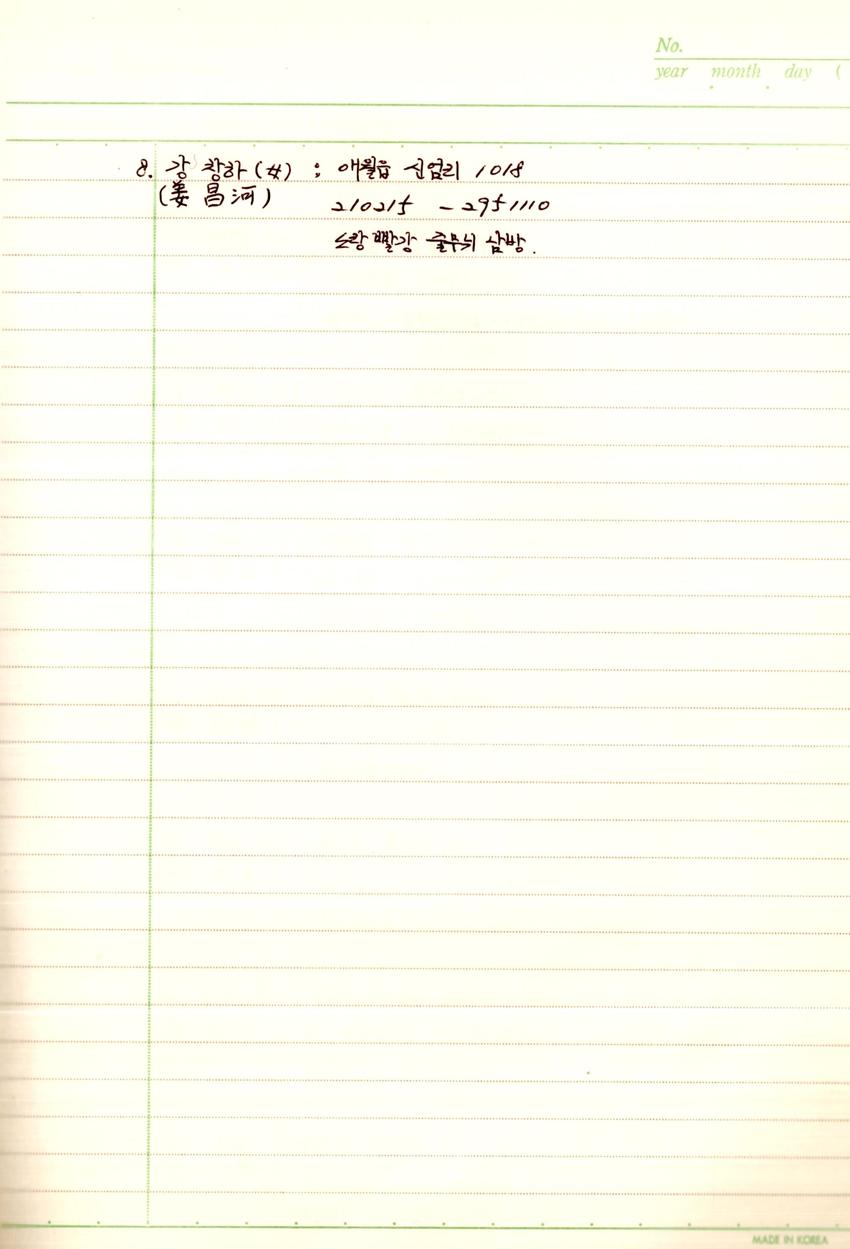 No.
year month day (
8. 강 창하 (女) : 애월읍 신엄리 1018
(姜 昌河) 210215 - 2951110
노랑 빨강 줄무늬 삼방.
MADE IN KOREA